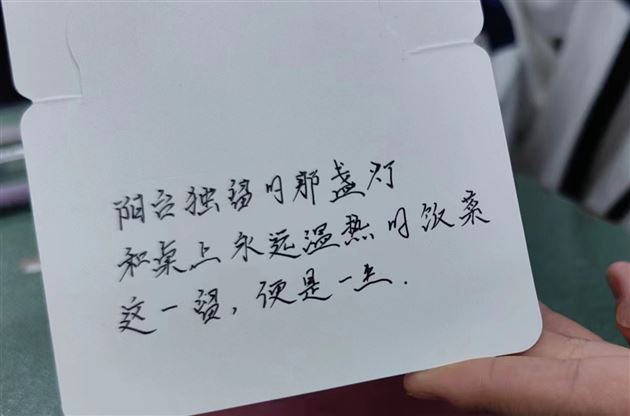 阳台独留的那盏灯
和桌上永远温热的饭菜
这一留，便是一生.